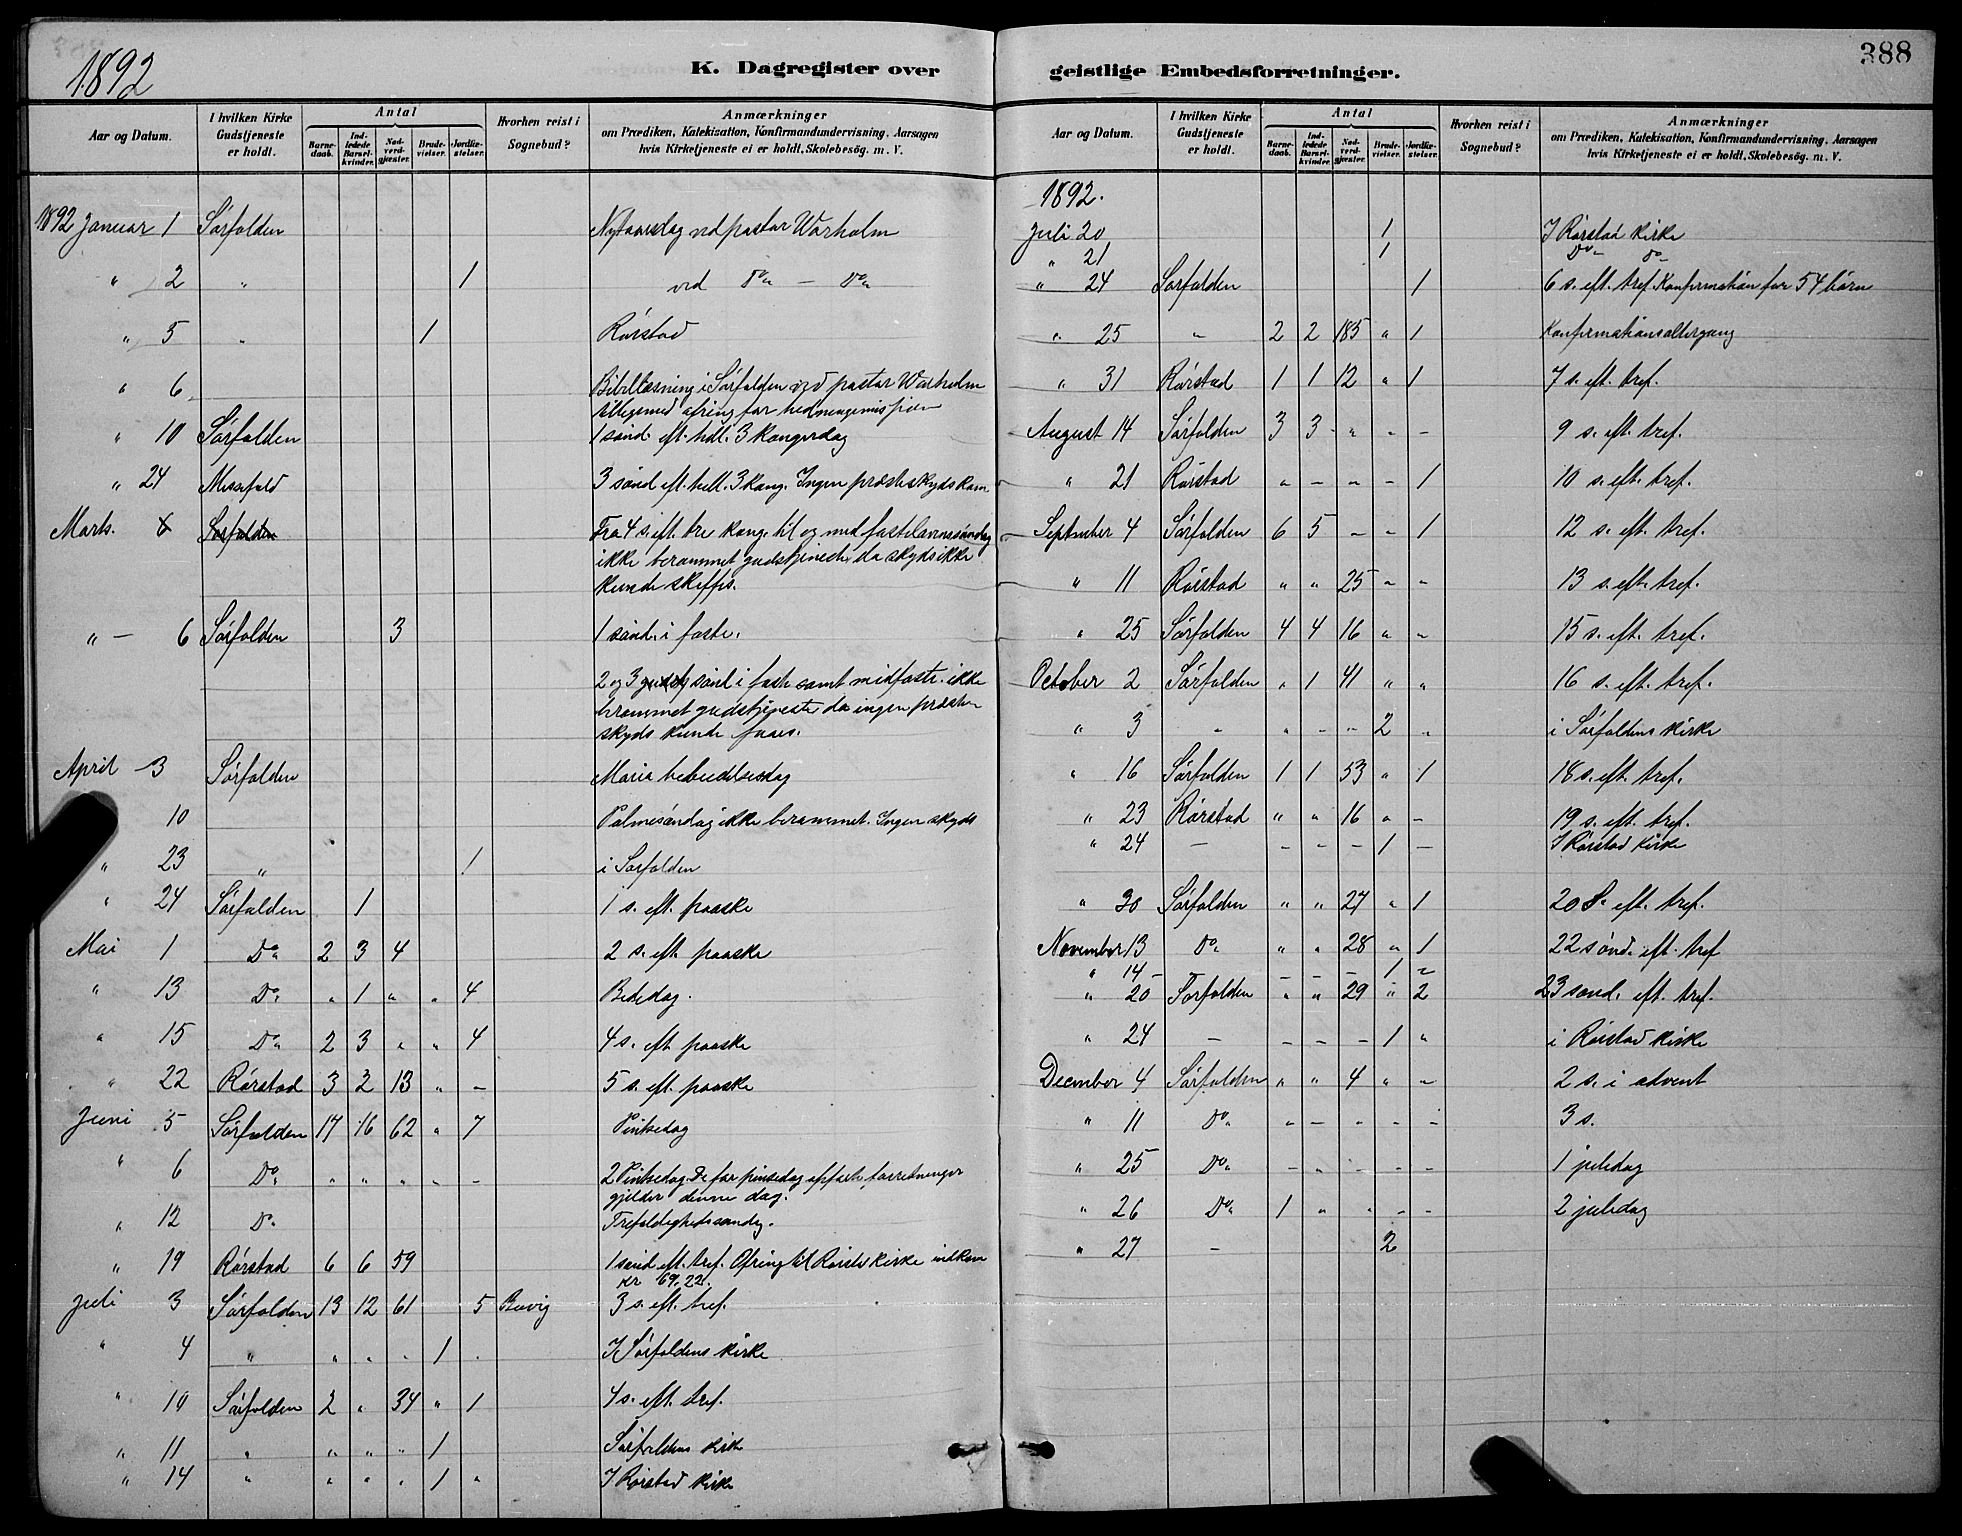 388
1892
K. Dagregister over
geistlige Embedsforretninger.
Aar og Datum. | I hvilken Kirke Gudstjeneste er holdt. | Antal | Barnedaab. | Indledede Barselkvinder. | Nadverdgjester. | Brudevielser. | Jordfæstelser. | Hvorhen reist i Sognebud? | Anmærkninger om Prædiken, Katekisation, Konfirmandundervisning, Aarsagen hvis Kirketjeneste ei er holdt, Skolebesög. m. V.
1892 Januar 1 Sørfolden Nytaarsdag ved pastor Warholm
" 2 " 1 ved Do - Do
" 5 " 1 Rørstad
" 6 Bibellæsning i Sørfolden ved pastor Warholm
tilligemed ofring for hedningemission
" 10 Sørfolden 1 sønd. eft. hell. 3 kongersdag
" 24 Messefald 3 sønd eft. hell. 3 kong. Ingen præsteskyds kom
Marts. 6 Sørfolden Fra 4 s. eft. tre kong. til og med fastelavnssøndag
ikke berammet gudstjeneste, da skyds ikke
kunde skaffes.
" - 6 Sørfolden 3 1 sønd. i faste.
2 og 3 sønd i faste samt midfaste ikke
berammet gudstjeneste da ingen præste
skyds kunde faaes.
April 3 Sørfolden Maria bebudelsesdag
10 Palmesøndag ikke berammet. Ingen skyds
" 23 " 1 i Sørfolden
" 24 Sørfolden 1 1 s. eft. paaske
Mai 1 Do 2 3 4 2 s. eft. paaske
" 13 Do " 1 " " 4 Bededag.
" 15 Do 2 3 " " 4 4 s. eft. paaske
" 22 Rørstad 3 2 13 " - 5 s. eft. paaske
Juni 5 Sørfolden 17 16 62 " 7 Pintsedag
" 6 Do " " " " - 2 Pintsedag. De for pinsedag opførte forretninger
gjelder denne dag.
" 12 Do Trefoldighedssøndag.
" 19 Rørstad 6 6 59 1 sønd eft. tref. Ofring til Rørstad kirke indkom
kr 69,22.
Juli 3 Sørfolden 13 12 61 5 Bovig 3 s. eft. tref.
" 4 " " " " 1 . I Sørfoldens kirke
" 10 Sørfolden 2 " 34 " 1 4 s. eft. tref.
" 11 " " " " 1 Sørfoldens kirke
" 14 " " " " 1 " I Rørstad kirke
Aar og Datum. | I hvilken Kirke Gudstjeneste er holdt. | Antal | Barnedaab. | Indledede Barselkvinder. | Nadverdgjester. | Brudevielser. | Jordfæstelser. | Hvorhen reist i Sognebud? | Anmærkninger om Prædiken, Katekisation, Konfirmandundervisning, Aarsagen hvis Kirketjeneste ei er holdt, Skolebesög. m. V.
1892.
Juli 20 1 I Rørstad kirke
" 21 1 Do Do
" 24 Sørfolden 1 6 s. eft. tref. Konfirmation for 54 børn
" 25 " 2 2 185 " 1 Konfirmationsaltergang
" 31 Rørstad 1 1 12 " 1 7 s. eft. tref.
August 14 Sørfolden 3 3 - " - - 9 s. eft. tref.
" 21 Rørstad " - " - 1 10 s. eft. tref.
September 4 Sørfolden 6 5 - - 1 12 s. eft. tref.
" 11 Rørstad " " 25 " " 13 s. eft. tref.
" 25 Sørfolden 4 4 16 " " 15 s. eft. tref.
October 2 Sørfolden " 1 41 " " 16 s. eft. tref.
" 3 " " - - 2 " i Sørfoldens kirke
" 16 Sørfolden 1 1 53 " 1 18 s. eft. tref.
" 23 Rørstad " " 16 " - 19 s. eft. tref.
" 24 - - - - 1 - I Rørstad kirke
" 30 Sørfolden " " 27 " 1 20 S. eft. tref.
November 13 Do " " 28 " 1 22 sønd. eft. tref
" 14 - - - - 1 -
" 20 Sørfolden " " 29 " 2 23 sønd. eft. tref.
" 24 - - - - 1 " i Rørstad kirke
December 4 Sørfolden " " 4 " - 2 s. i advent
" 11 Do " - " - - 3 s.
" 25 Do - " - - - 1 juledag
" 26 Do 1 " " - - 2 juledag
" 27 - 2